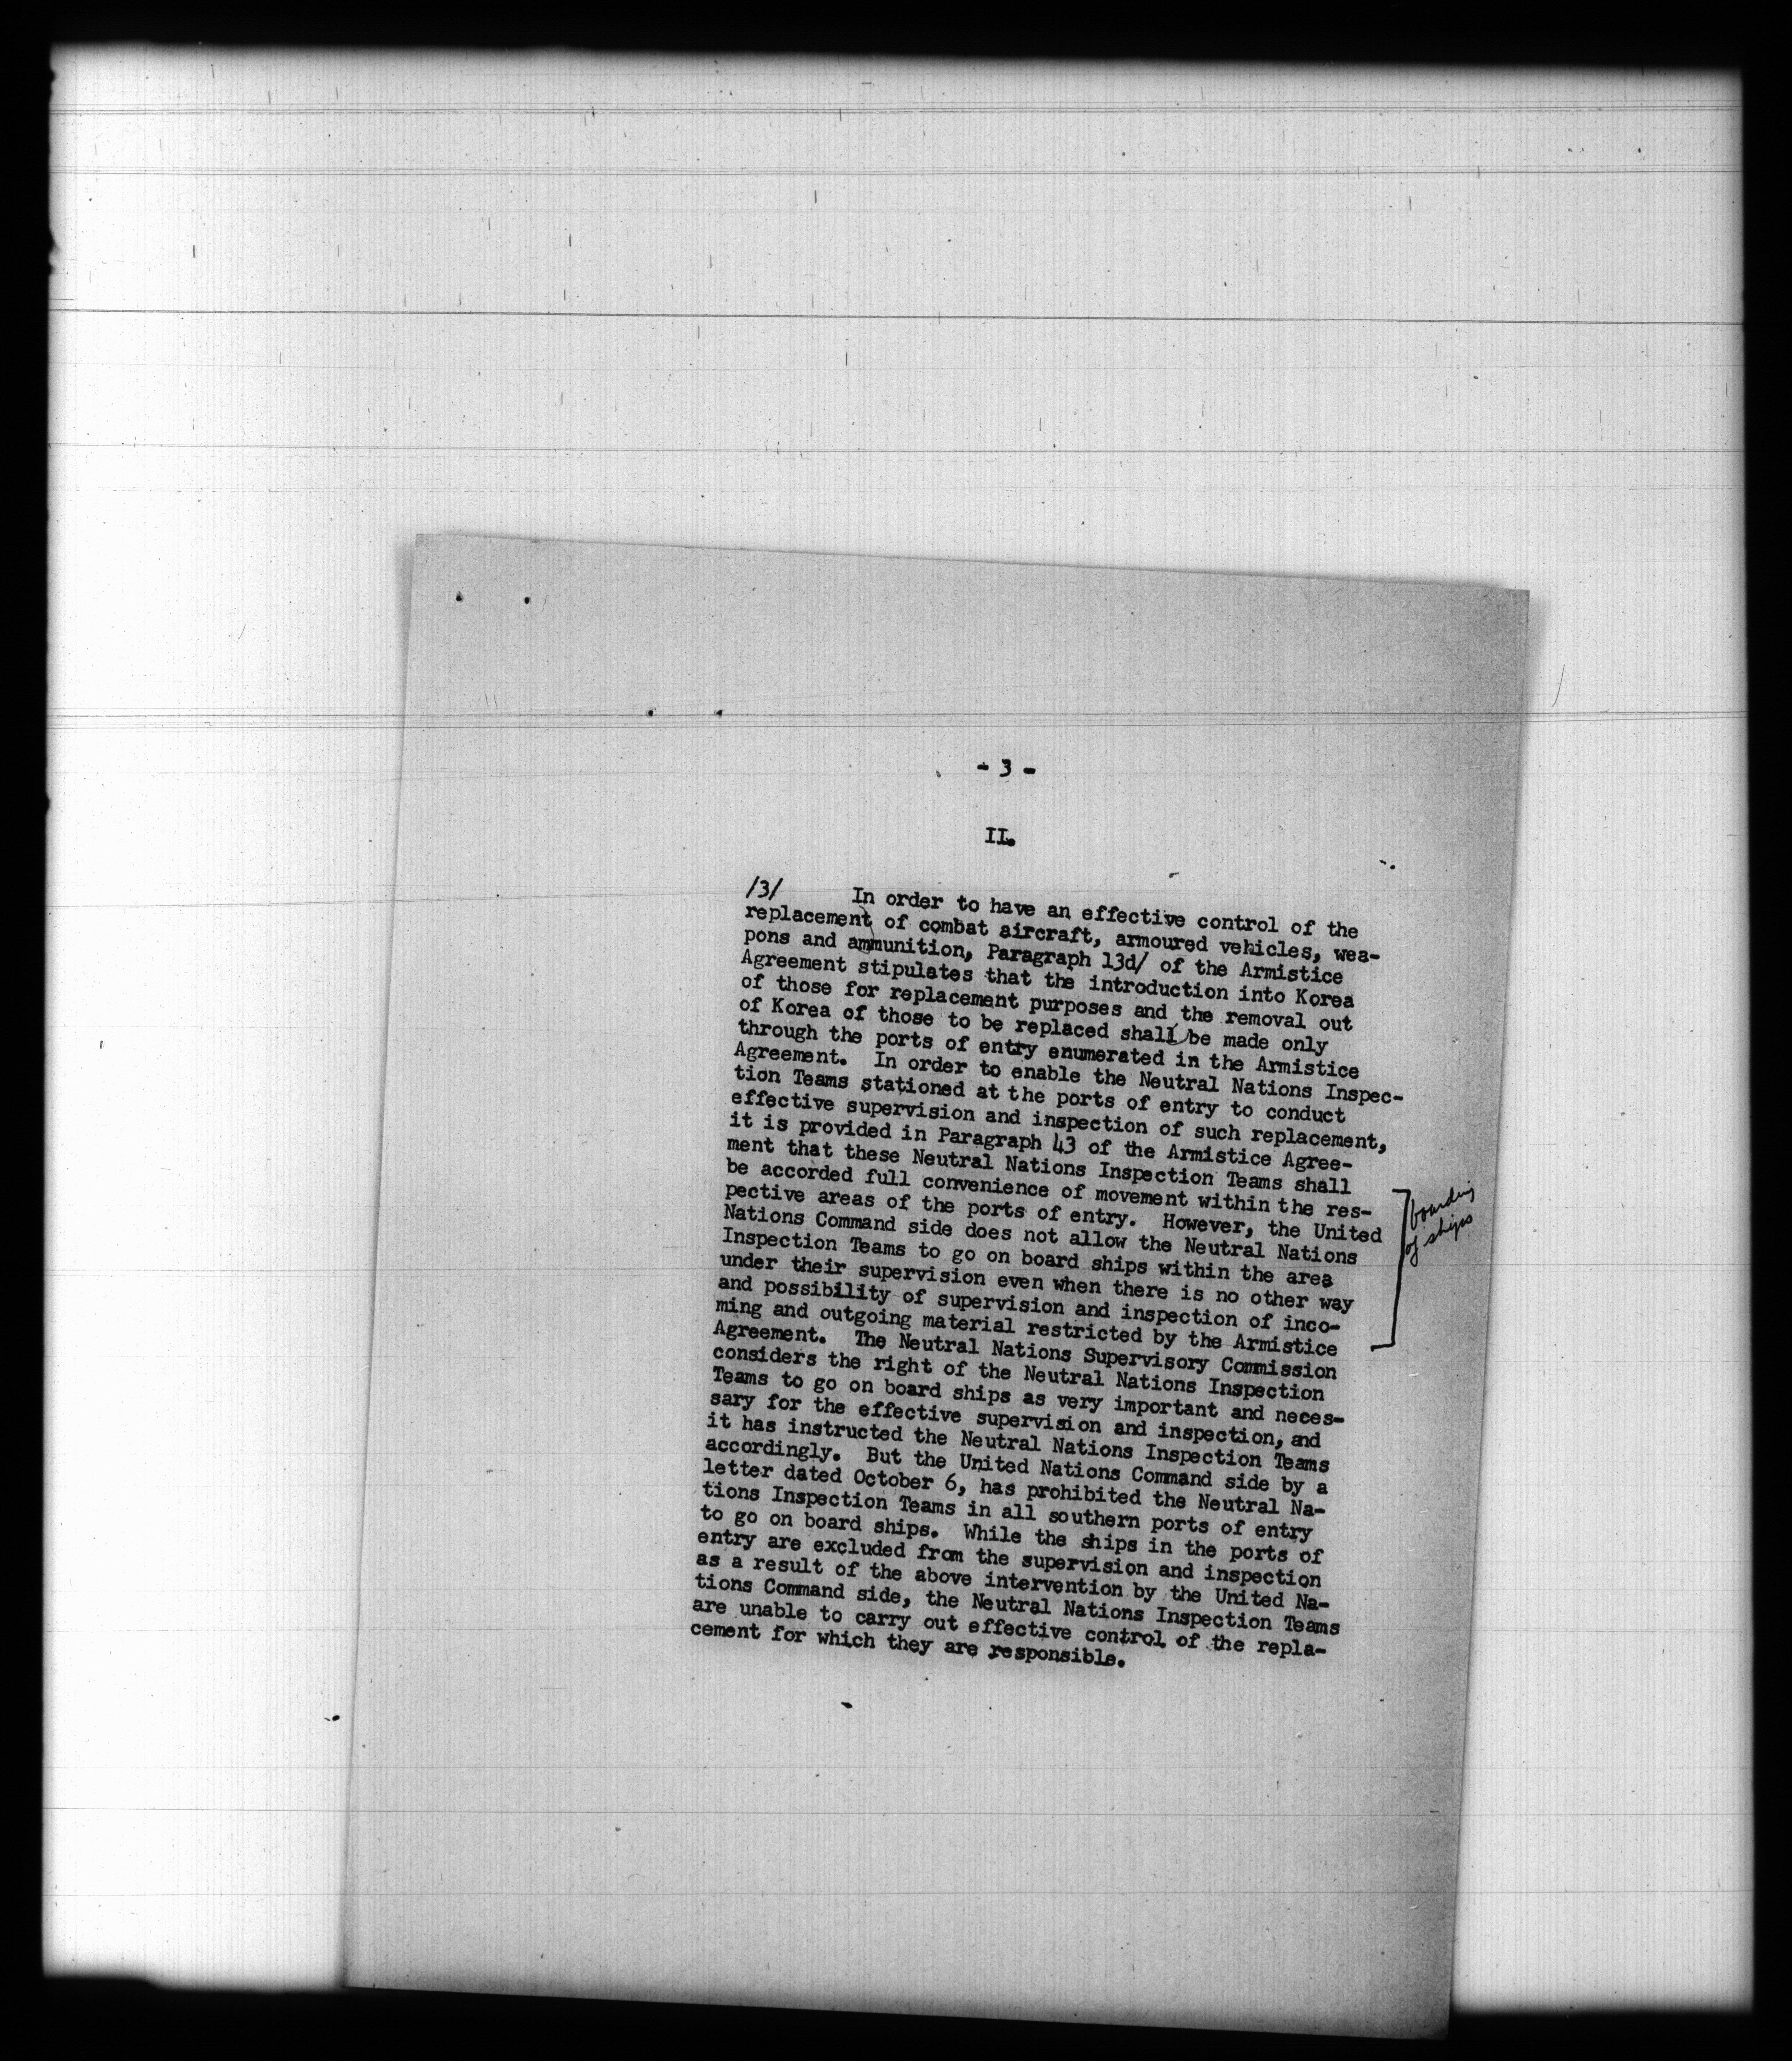 - 3 -
II.
/3/ In order to have an effective control of the
replacement of combat aircraft, armoured vehicles, wea-
pons and ammunition, Paragraph 13d/ of the Armistice
Agreement stipulates that the introduction into Korea
of those for replacement purposes and the removal out
of Korea of those to be replaced shall be made only
through the ports of entry enumerated in the Armistice
Agreement. In order to enable the Neutral Nations Inspec-
tion Teams stationed at the ports of entry to conduct
effective supervision and inspection of such replacement,
it is provided in Paragraph 43 of the Armistice Agree-
ment that these Neutral Nations Inspection Teams shall
be accorded full convenience of movement within the res-
pective areas of the ports of entry. However, the United
Nations Command side does not allow the Neutral Nations
Inspection Teams to go on board ships within the area
under their supervision even when there is no other way
and possibility of supervision and inspection of inco-
ming and outgoing material restricted by the Armistice
Agreement. The Neutral Nations Supervisory Commission
considers the right of the Neutral Nations Inspection
Teams to go on board ships as very important and neces-
sary for the effective supervision and inspection, and
it has instructed the Neutral Nations Inspection Teams
accordingly. But the United Nations Command side by a
letter dated October 6, has prohibited the Neutral Na-
tions Inspection Teams in all southern ports of entry
to go on board ships. While the ships in the ports of
entry are excluded from the supervision and inspection
as a result of the above intervention by the United Na-
tions Command side, the Neutral Nations Inspection Teams
are unable to carry out effective control of the repla-
cement for which they are responsible.
boarding
of ships